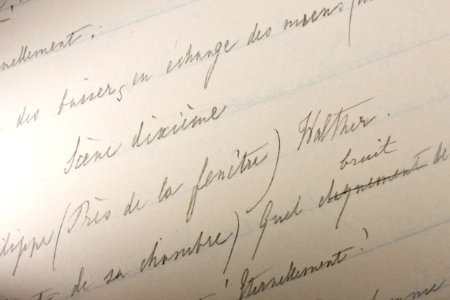 nellement :
des baiser, en échange des miens
Scène dixième
ilippe (Près de la fenêtre) Walther.
bruit
de sa chambre) Quel claquement de
! Eternellement !